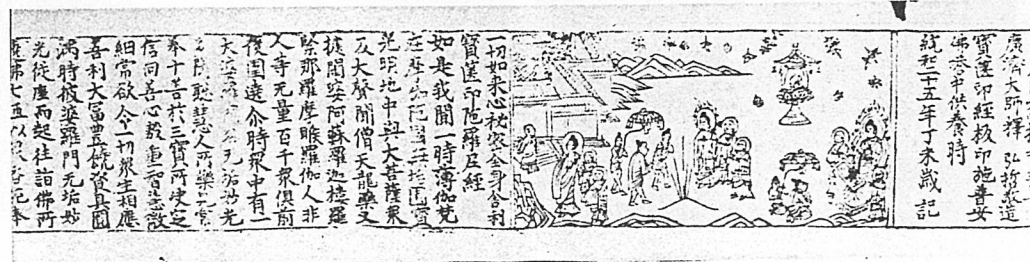 廣濟大師釋 弘哲敬造
寶篋印經板印施普安
佛塔中供養時
統和二十五年丁未歲記
一切如来心秘密全身舍利
寶篋印陁羅尼經
如是我聞一時薄伽梵
在摩伽陁國無垢園寶
光明地中與大菩薩衆
及大聲聞僧天龍藥叉
揵闥婆阿蘇羅迦樓羅
緊那羅摩睺羅伽人非
人等无量百千衆俱前
後圍遶尒時衆中有一
大婆羅門名无垢妙光
多聞聰慧人所樂見常
奉十善於三寶所決定
信向善心殷重智慧微
細常欲令一切衆生相應
善利大富豊饒資具圓
滿時彼婆羅門无垢妙
光從座而起往詣佛所
遶佛七匝以衆香花奉